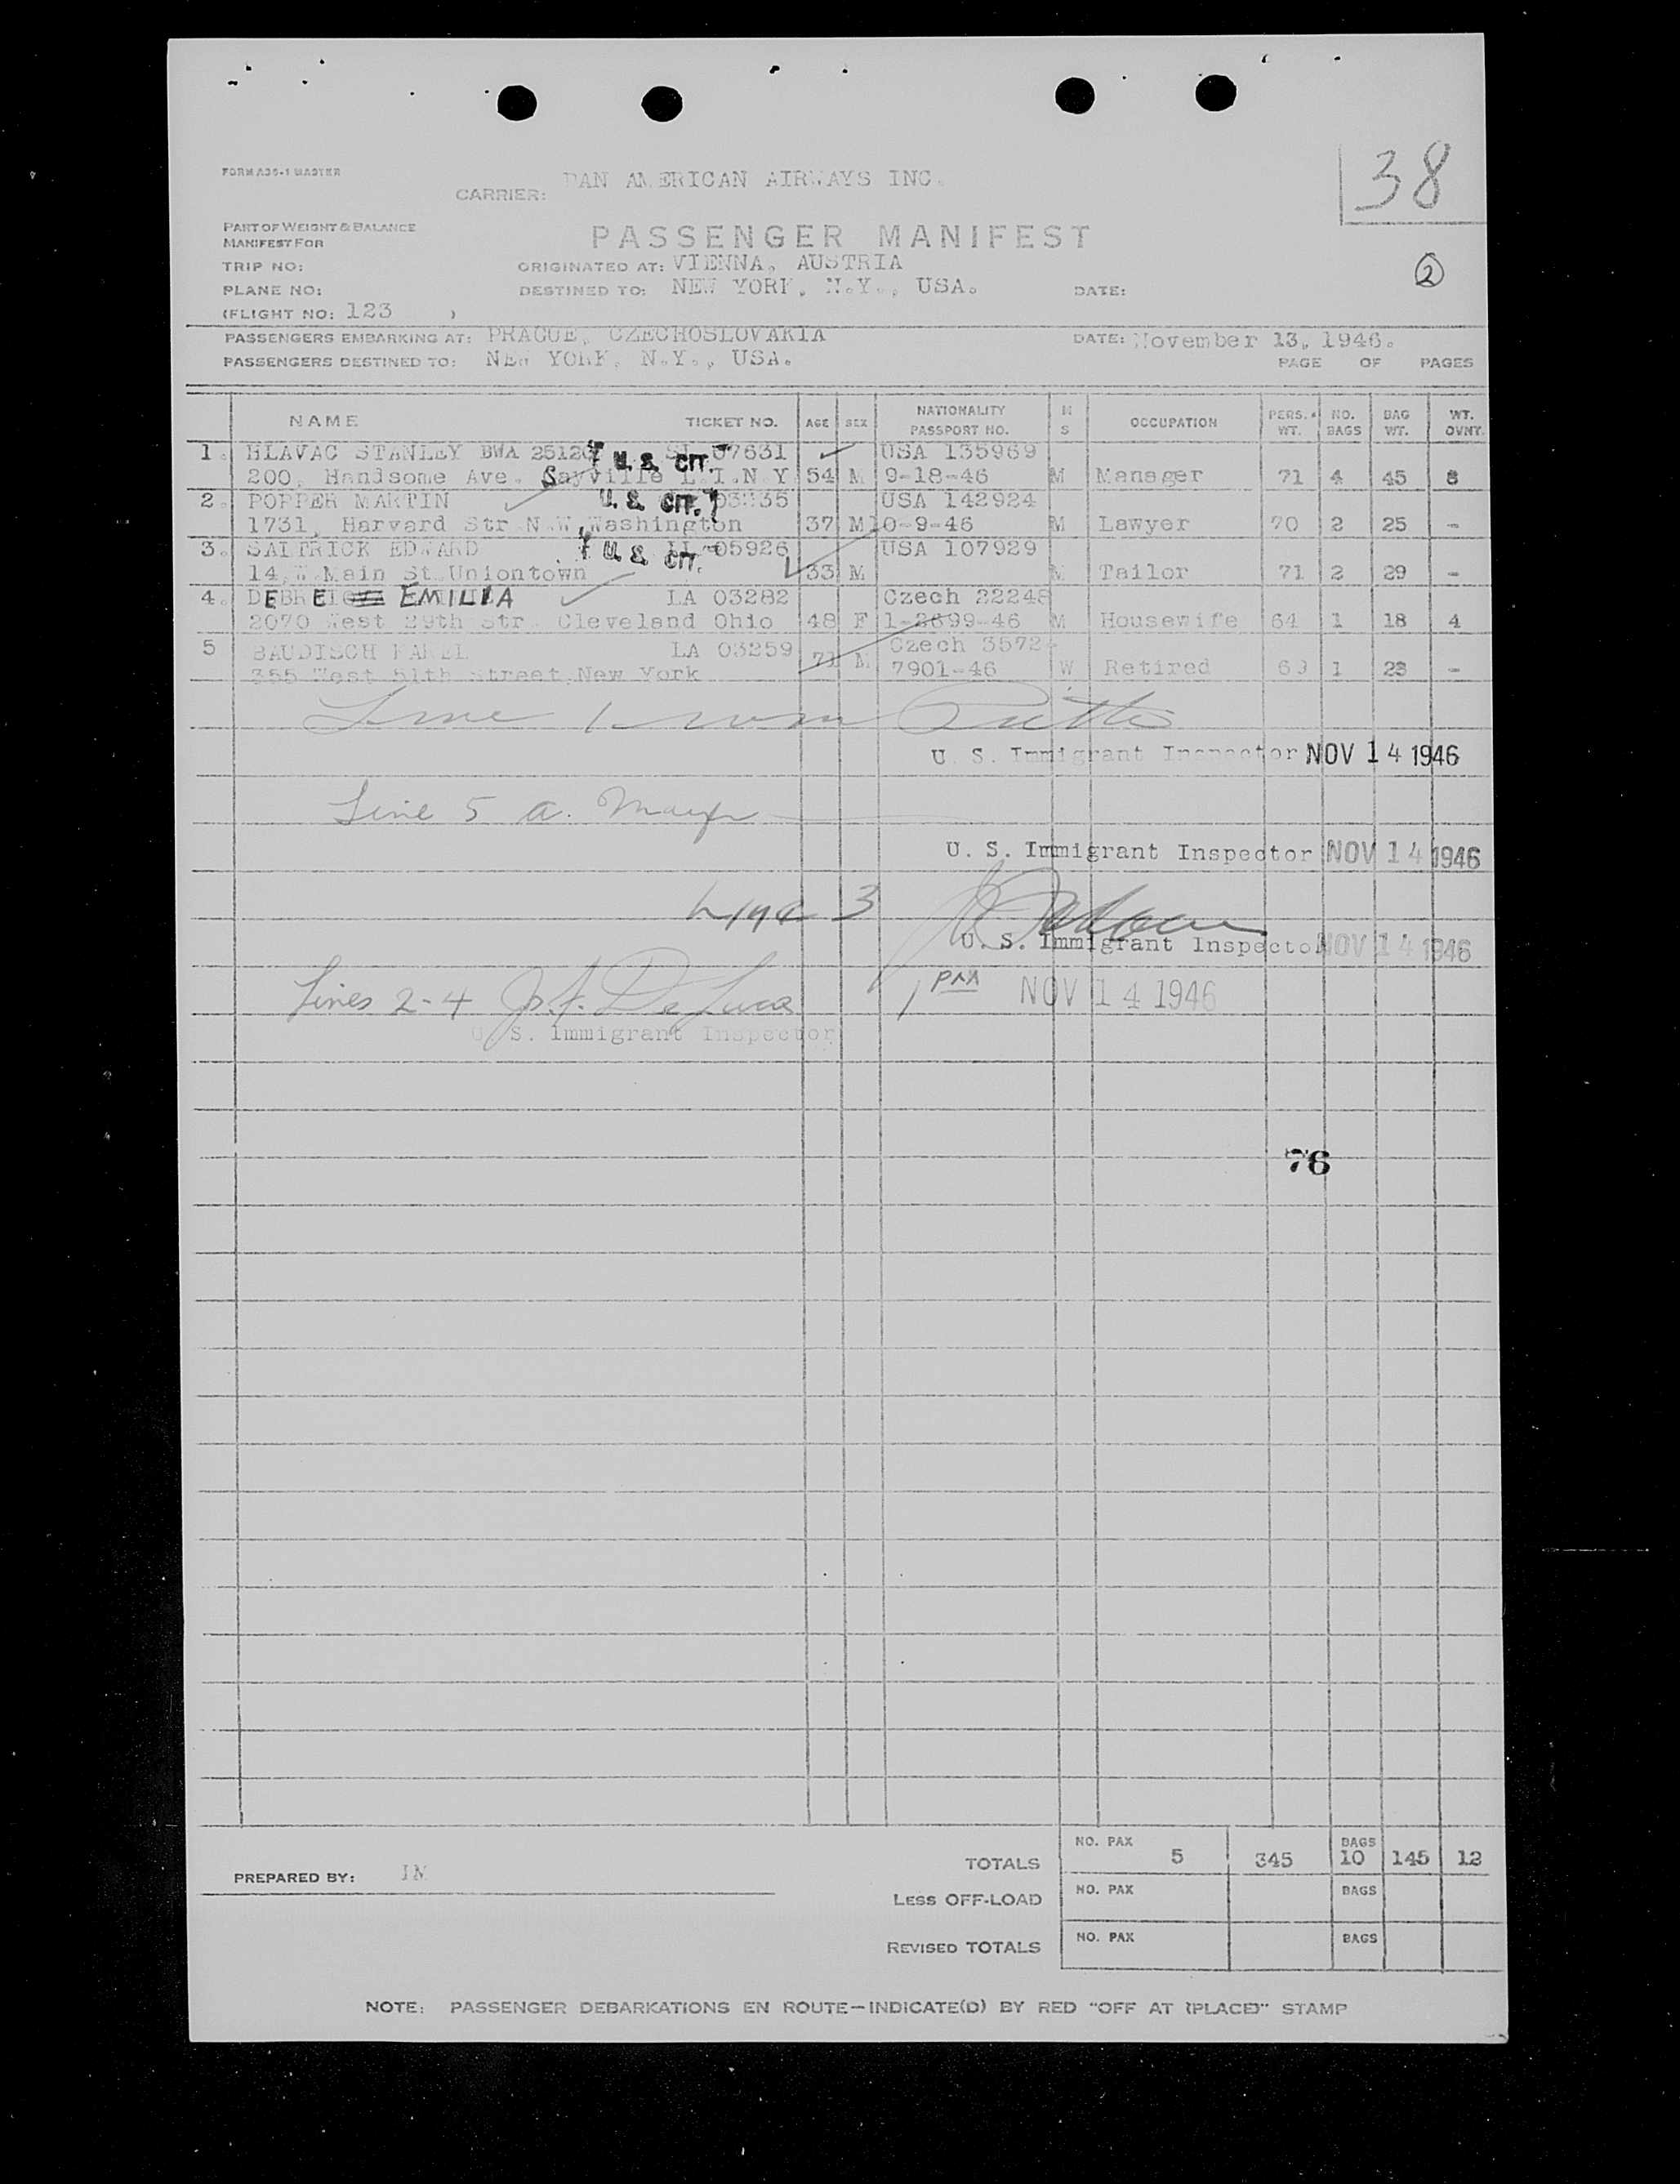 38
FORM A36-1 MASTER
CARRIER: PAN AMERICAN AIRWAYS INC.
PART OF WEIGHT & BALANCE
MANIFEST FOR
PASSENGER MANIFEST
TRIP NO: ORIGINATED AT: VIENNA, AUSTRIA
2
PLANE NO: DESTINED TO: NEW YORK, N.Y., USA. DATE:
(FLIGHT NO: 123 )
PASSENGERS EMBARKING AT: PRAGUE, CZECHOSLOVAKIA DATE: November 13, 1946.
PASSENGERS DESTINED TO: NEW YORK, N.Y., USA. PAGE OF PAGES
NAME TICKET NO. AGE SEX NATIONALITY PASSPORT NO. M S OCCUPATION PERS. WT. NO. BAGS BAG WT. WT. OVNT.
1. HLAVAC STANLEY BWA U. S. CIT. 07631 USA 135969
200, Handsome Ave. Sayville L.I.N Y 54 M 9-18-46 M Manager 71 4 45 8
2. POPPER MARTIN U. S. CIT. USA 142924
1731, Harvard Str N.W, Washington 37 M 10-9-46 M Lawyer 70 2 25 -
3. EDWARD U. S. CIT. 05926 USA 107929
14, W.Main St Uniontown 33 M M Tailor 71 2 29 -
4. EMILIA LA 03282 Czech 22248
2070 West 29th Str. Cleveland Ohio 48 F 1-2699-46 M Housewife 64 1 18 4
5 BAUDISCH KAREL LA 03259 Czech 3572
355 West 51th Street, New York 71 M 7901-46 W Retired 69 1 28 -
Line 1
U. S. Immigrant Inspector NOV 14 1946
Line 5 a.
U. S. Immigrant Inspector NOV 14 1946
Line 3
U. S. Immigrant Inspector NOV 14 1946
Lines 2-4 J. A. De Luca PAA NOV 14 1946
U. S. Immigrant Inspector
76
TOTALS NO. PAX 5 345 BAGS 10 145 12
PREPARED BY:
LESS OFF-LOAD NO. PAX BAGS
REVISED TOTALS NO. PAX BAGS
NOTE: PASSENGER DEBARKATIONS EN ROUTE—INDICATE(D) BY RED "OFF AT (PLACE)" STAMP